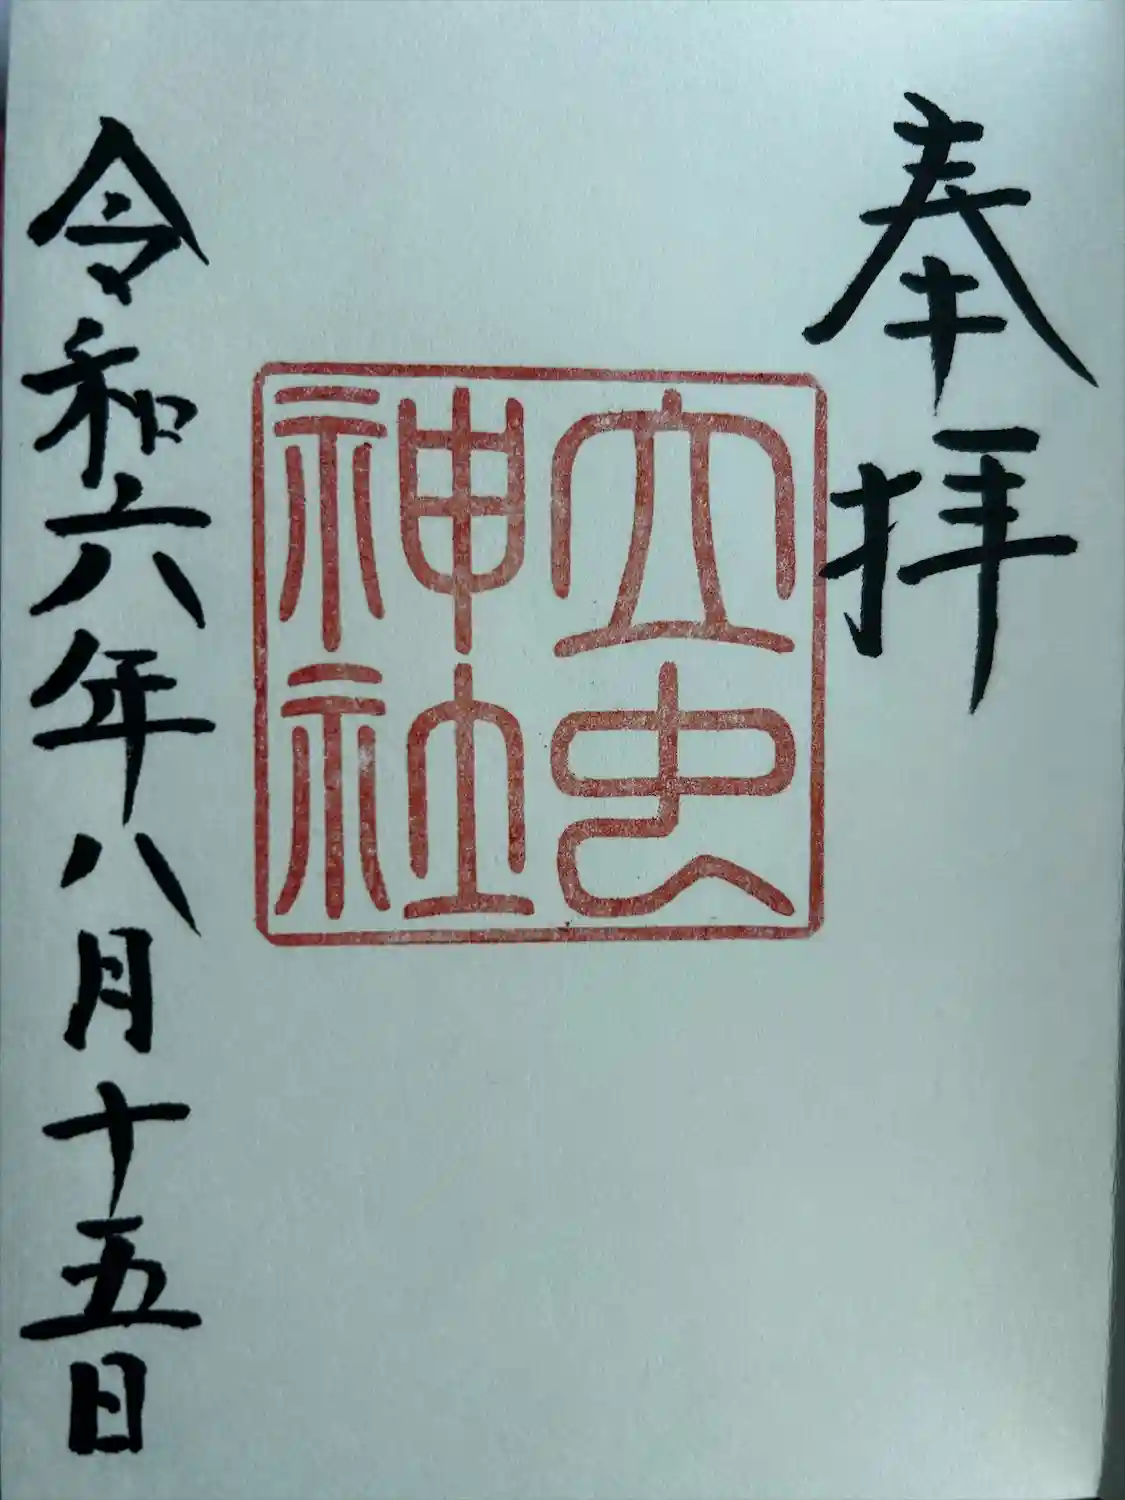 奉拝
立虫
神社
令和六年八月十五日